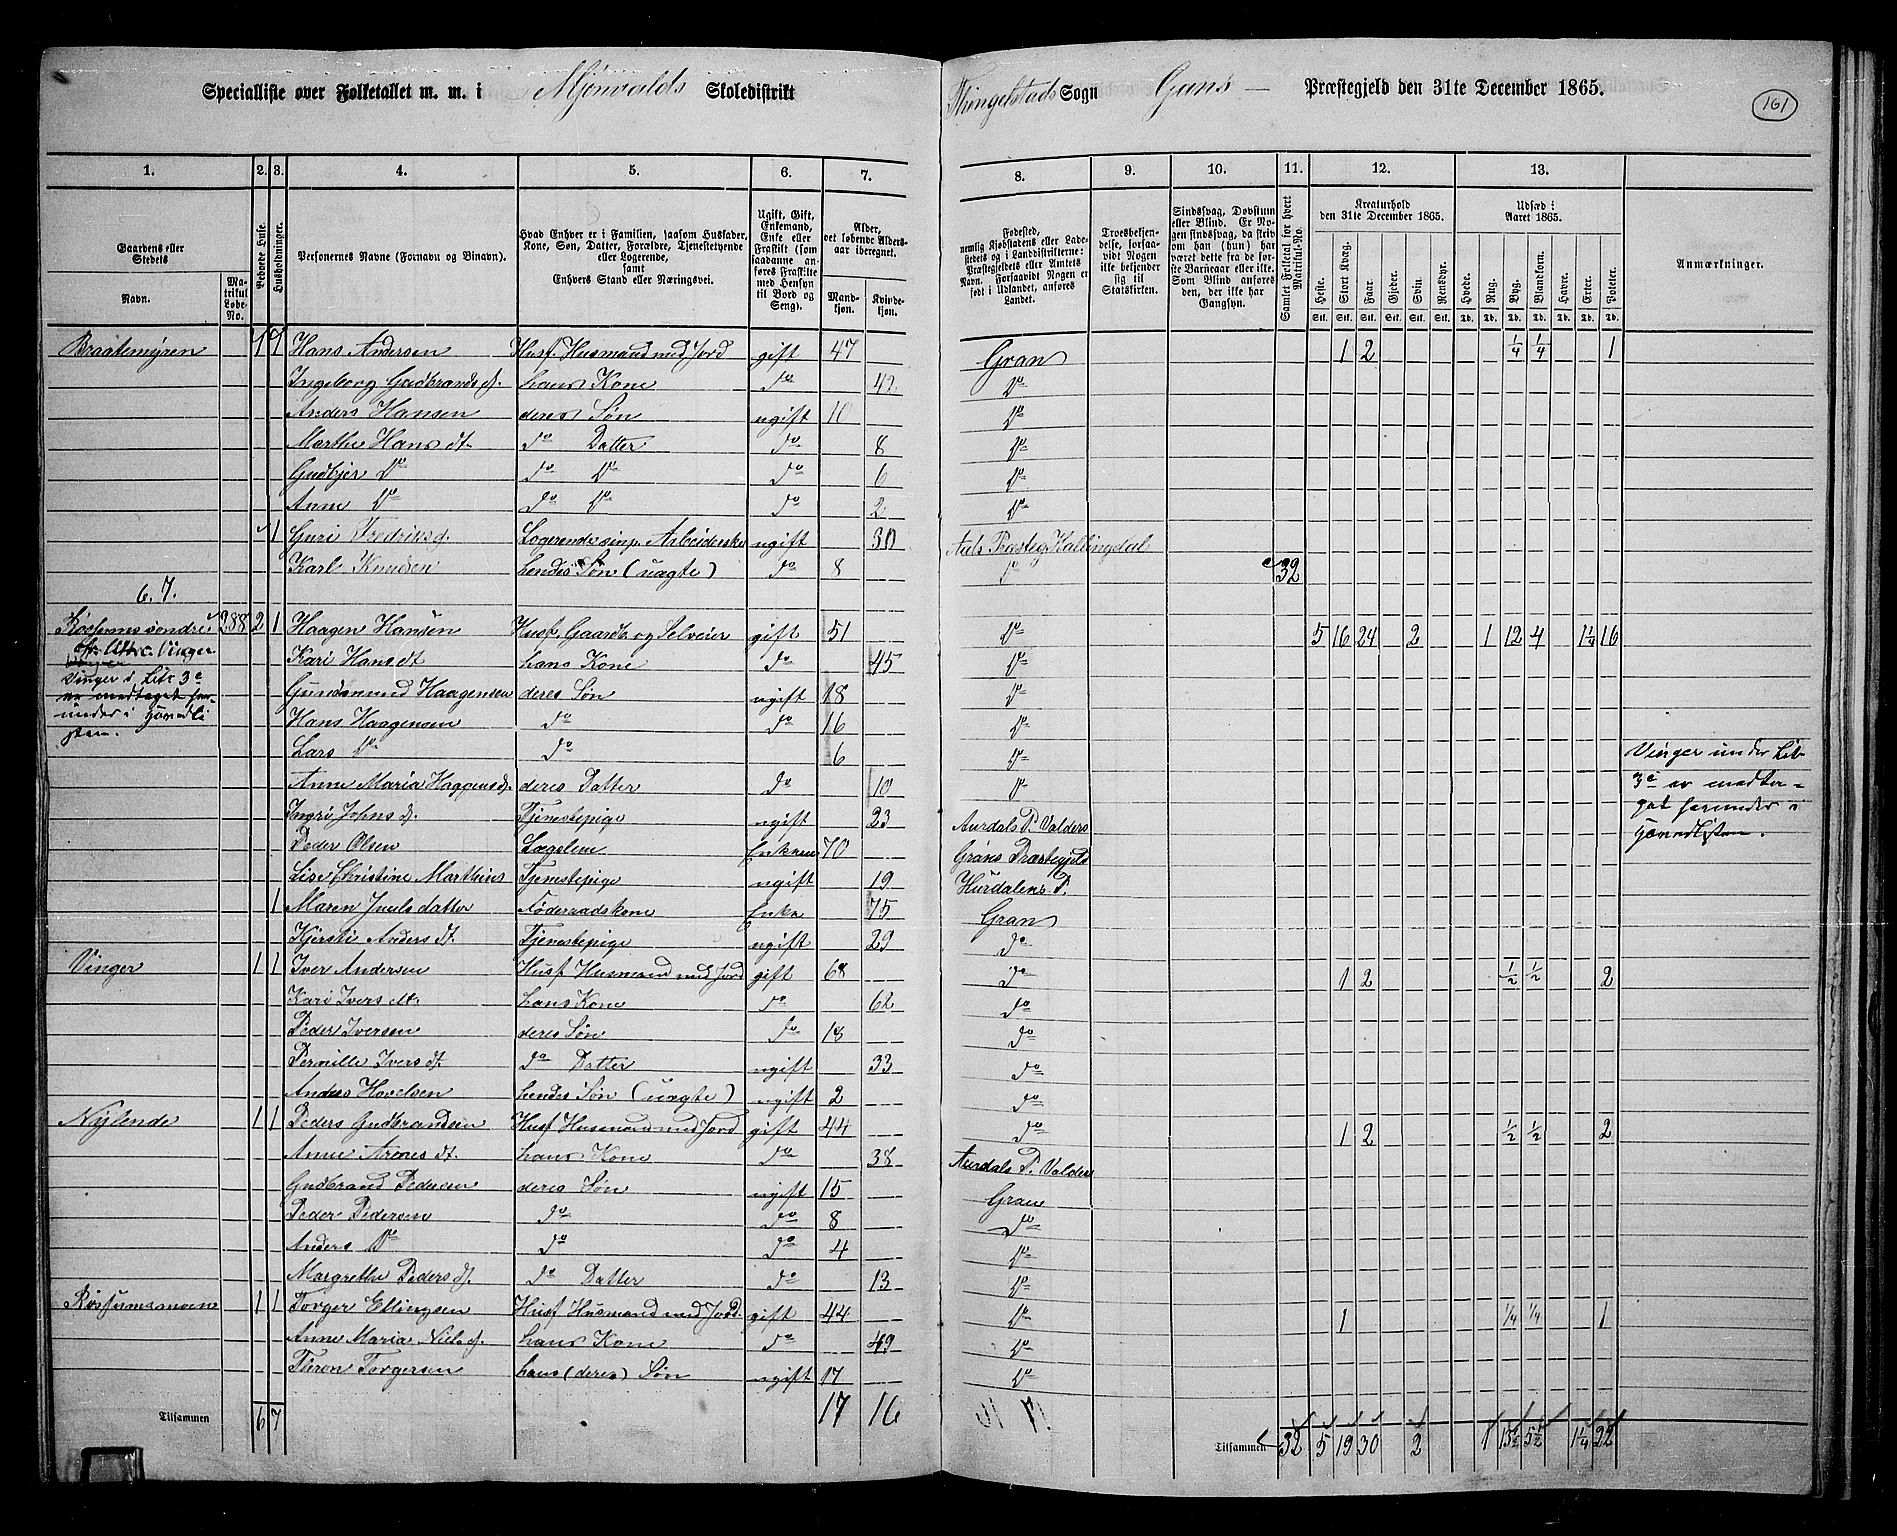 Specialliste over Folketallet m. m. i Mjønvolds Skoledistrikt
Tingelstads Sogn Grans Præstegjeld den 31te December 1865.
161
1. 2. 3. 4. 5. 6. 7.
8. 9. 10. 11. 12. 13.
Gaardens eller Stedets
Navn.
Matrikul Løbe-No.
Beboede Huse.
Husholdninger.
Personernes Navne (Fornavn og Binavn).
Hvad Enhver er i Familien, saasom Husfader, Kone, Søn, Datter, Forældre, Tjenestetyende eller Logerende, samt Enhvers Stand eller Næringsvei.
Ugift, Gift, Enkemand, Enke eller Fraskilt (som saadanne anføres Fraskilte med Hensyn til Bord og Seng).
Alder, det løbende Alders-aar iberegnet.
Mandkjøn.
Kvindekjøn.
Fødested, nemlig Kjøbstadens eller Ladestedets og i Landdistrikterne: Præstegjeldets eller Amtets Navn. Forsaavidt Nogen er født i Udlandet, anføres Landet.
Troesbekjendelse, forsaavidt Nogen ikke bekjender sig til Statskirken.
Sindssvag, Døvstum eller Blind. Er Nogen sindssvag, da skrives om han (hun) har været dette fra de første Barneaar eller ikke. Som Blind anføres den, der ikke har Gangsyn.
Samlet Folketal for hvert Matrikul-No.
Kreaturhold den 31te December 1865.
Heste. Stort Kvæg. Faar. Gjeder. Svin. Rensdyr.
Udsæd i Aaret 1865.
Hvede. Rug. Byg. Blankorn. Havre. Erter. Poteter.
Anmærkninger.
Braatemyren 1 1 Hans Andersen Husf. Husmand med Jord gift 47 Gran 1 2 1/4 1/4 1
Ingeborg Gudbrandsd. hans Kone do 42 do
Anders Hansen deres Søn ugift 10 do
Marthe Hansdt. do Datter do 8 do
Gudbjør do do do do 6 do
Anne do do do do 2 do
1 Guri Fredriksd. Logerende, Arbeiderske ugift 30 Aals Præsteg. Hallingdal
Karl Knudsen hendes Søn (uægte) do 8 do 32
6. 7.
søndre 288 2 1 Haagen Hansen Husf. Gaardb. og Selveier gift 51 do 5 16 24 2 1 12 4 1 1/4 16
Vinger
Vinger i Litr 3c
er medtaget her-
under i Hovedli
sten.
Kari Hansdt hans Kone do 45 do
Gundemund Haagensen deres Søn ugift 18 do
Hans Haagensen do do 16 do
Lars do do 6 do
Vinger under Lit
3c er medta-
get herunder i
Hovedlisten.
Anne Maria Haagensd. deres Datter do 10 do
Ingri Johnsd. Tjenestepige ugift 23 Aurdals P. Valders
Peder Olsen Lægslem Enkem 70 Grans Præstegjeld
Lise Christine Marthins Tjenestepige ugift 19 Hurdalens P.
1 Maren Juulsdatter Føderaadskone Enke 75 Gran
Kjersti Andersdt. Tjenestepige ugift 29 do
Vinger 1 1 Iver Andersen Husf Husmand med Jord gift 68 do 1 2 1/2 1/2 2
Kari Iversdt. hans Kone do 62 do
Peder Iversen deres Søn do 18 do
Pernille Iversdt. do Datter ugift 33 do
Anders Hovelsen hendes Søn (uægte) ugift 2 do
Nylende 1 1 Peders Gudbrandsen Husf Husmand med Jord gift 44 do 1 2 1/2 1/2 2
Anne Arnesdt. hans Kone do 38 Aurdals P. Valders
Gudbrand Pedersen deres Søn ugift 15 Gran
Peder Pedersen do do 8 do
Anders do do do 4 do
Margrethe Pedersd. do Datter do 13 do
Røssumsmoen 1 1 Torger Ellingsen Husf Husmand med Jord. gift 44 do 1 1/4 1/4 1
Anne Maria Nielsd. hans Kone do 49 do
Torgersen hans (deres) Søn ugift 17 do
Tilsammen 6 7 17 16
Tilsammen 32 5 19 30 2 1 13 1/2 5 1/2 1 1/4 22